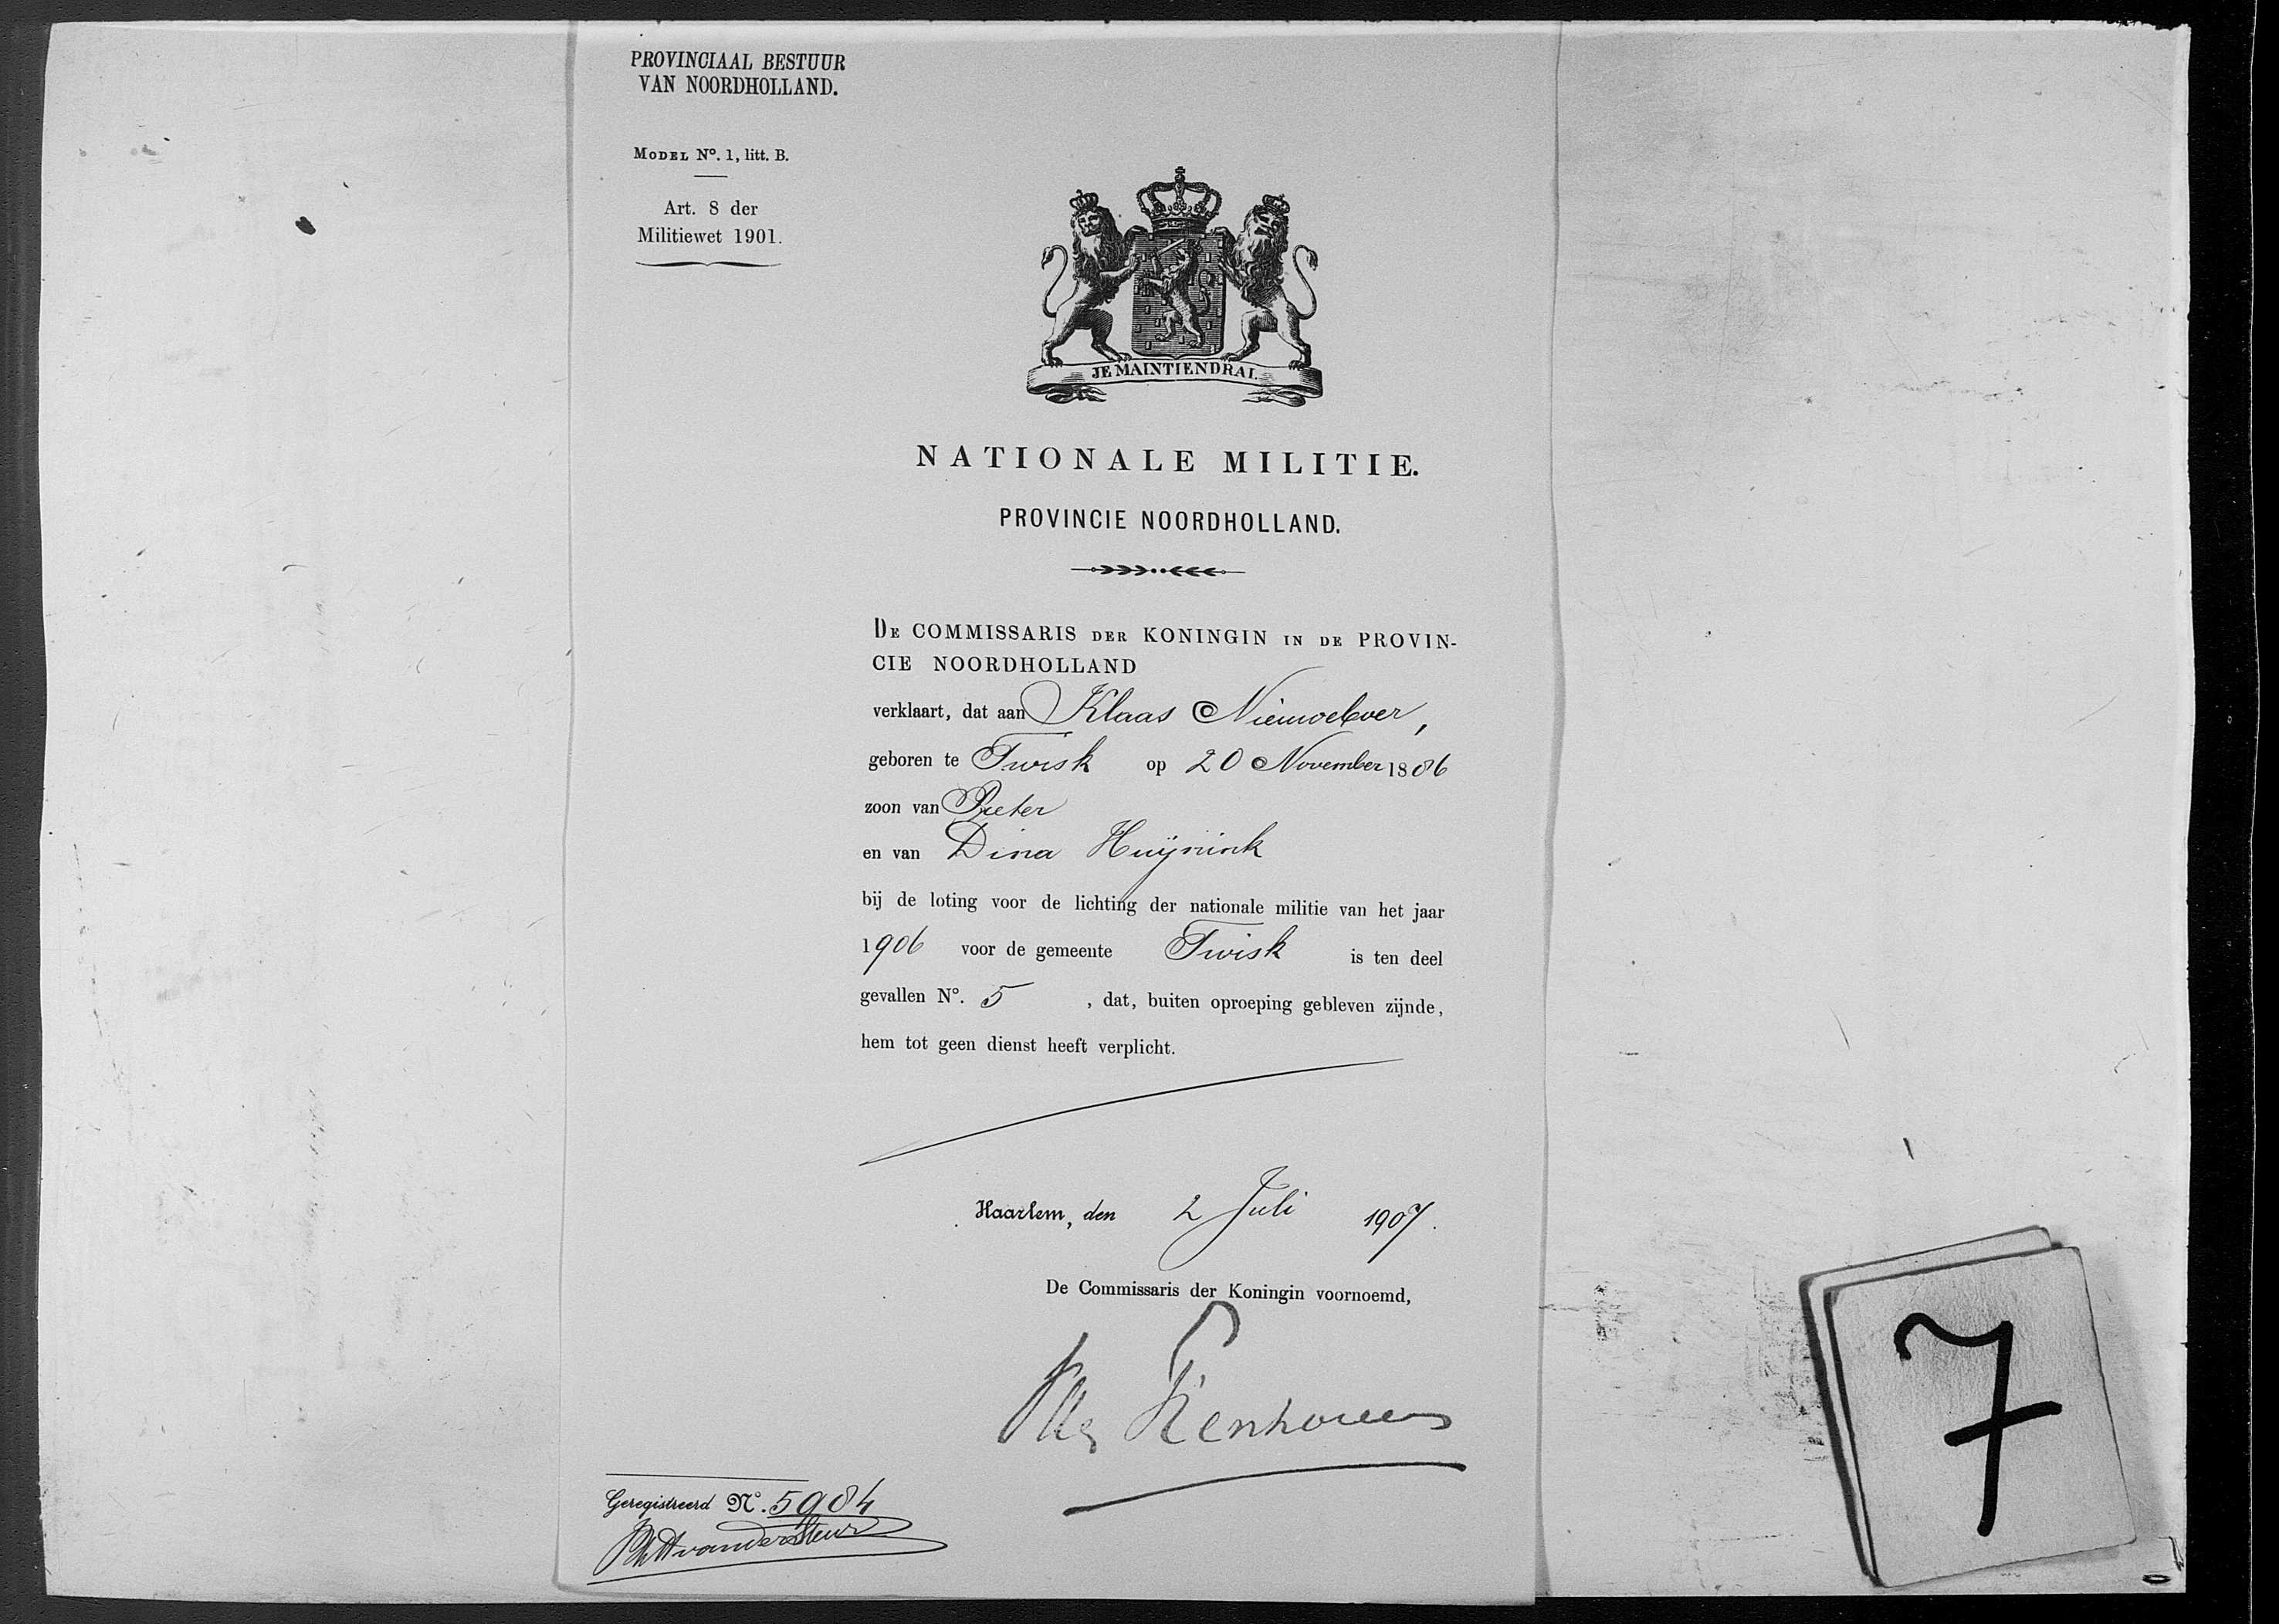 PROVINCIAAL BESTUUR
VAN NOORDHOLLAND.
MODEL Nº. 1, litt. B.
Art. 8 der
Militiewet 1901.
JE MAINTIENDRAI.
NATIONALE MILITIE.
PROVINCIE NOORDHOLLAND.
DE COMMISSARIS DER KONINGIN IN DE PROVIN-
CIE NOORDHOLLAND
verklaart, dat aan Klaas
geboren te Twisk op 20 November 1886
zoon van Pieter
en van Dina Huijnink
bij de loting voor de lichting der nationale militie van het jaar
1906 voor de gemeente Twisk is ten deel
gevallen Nº. 5 , dat, buiten oproeping gebleven zijnde,
hem tot geen dienst heeft verplicht.
Haarlem, den 2 Juli 1907.
De Commissaris der Koningin voornoemd,
Geregistreerd Nº. 5984
7